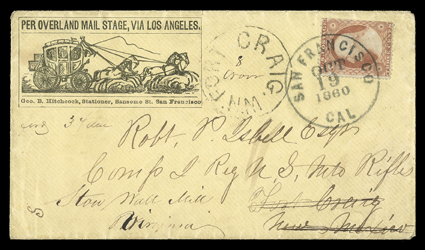 PER OVERLAND MAIL STAGE, VIA LOS ANGELES,
Geo. B. Hitchcock, Stationer, Sansome St. San Francisco
FORT CRAIG
N.M.
SAN FRANCISCO
OCT
19
1860
CAL
Robt. P. Isbell Esqr
Comp I Reg U S Mtd Rifles
Stow Wall Mill Fort Craig
Virginia New Mexico